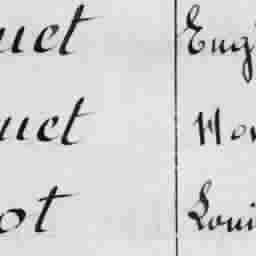 uct Eug
uct Hon
ot Loui